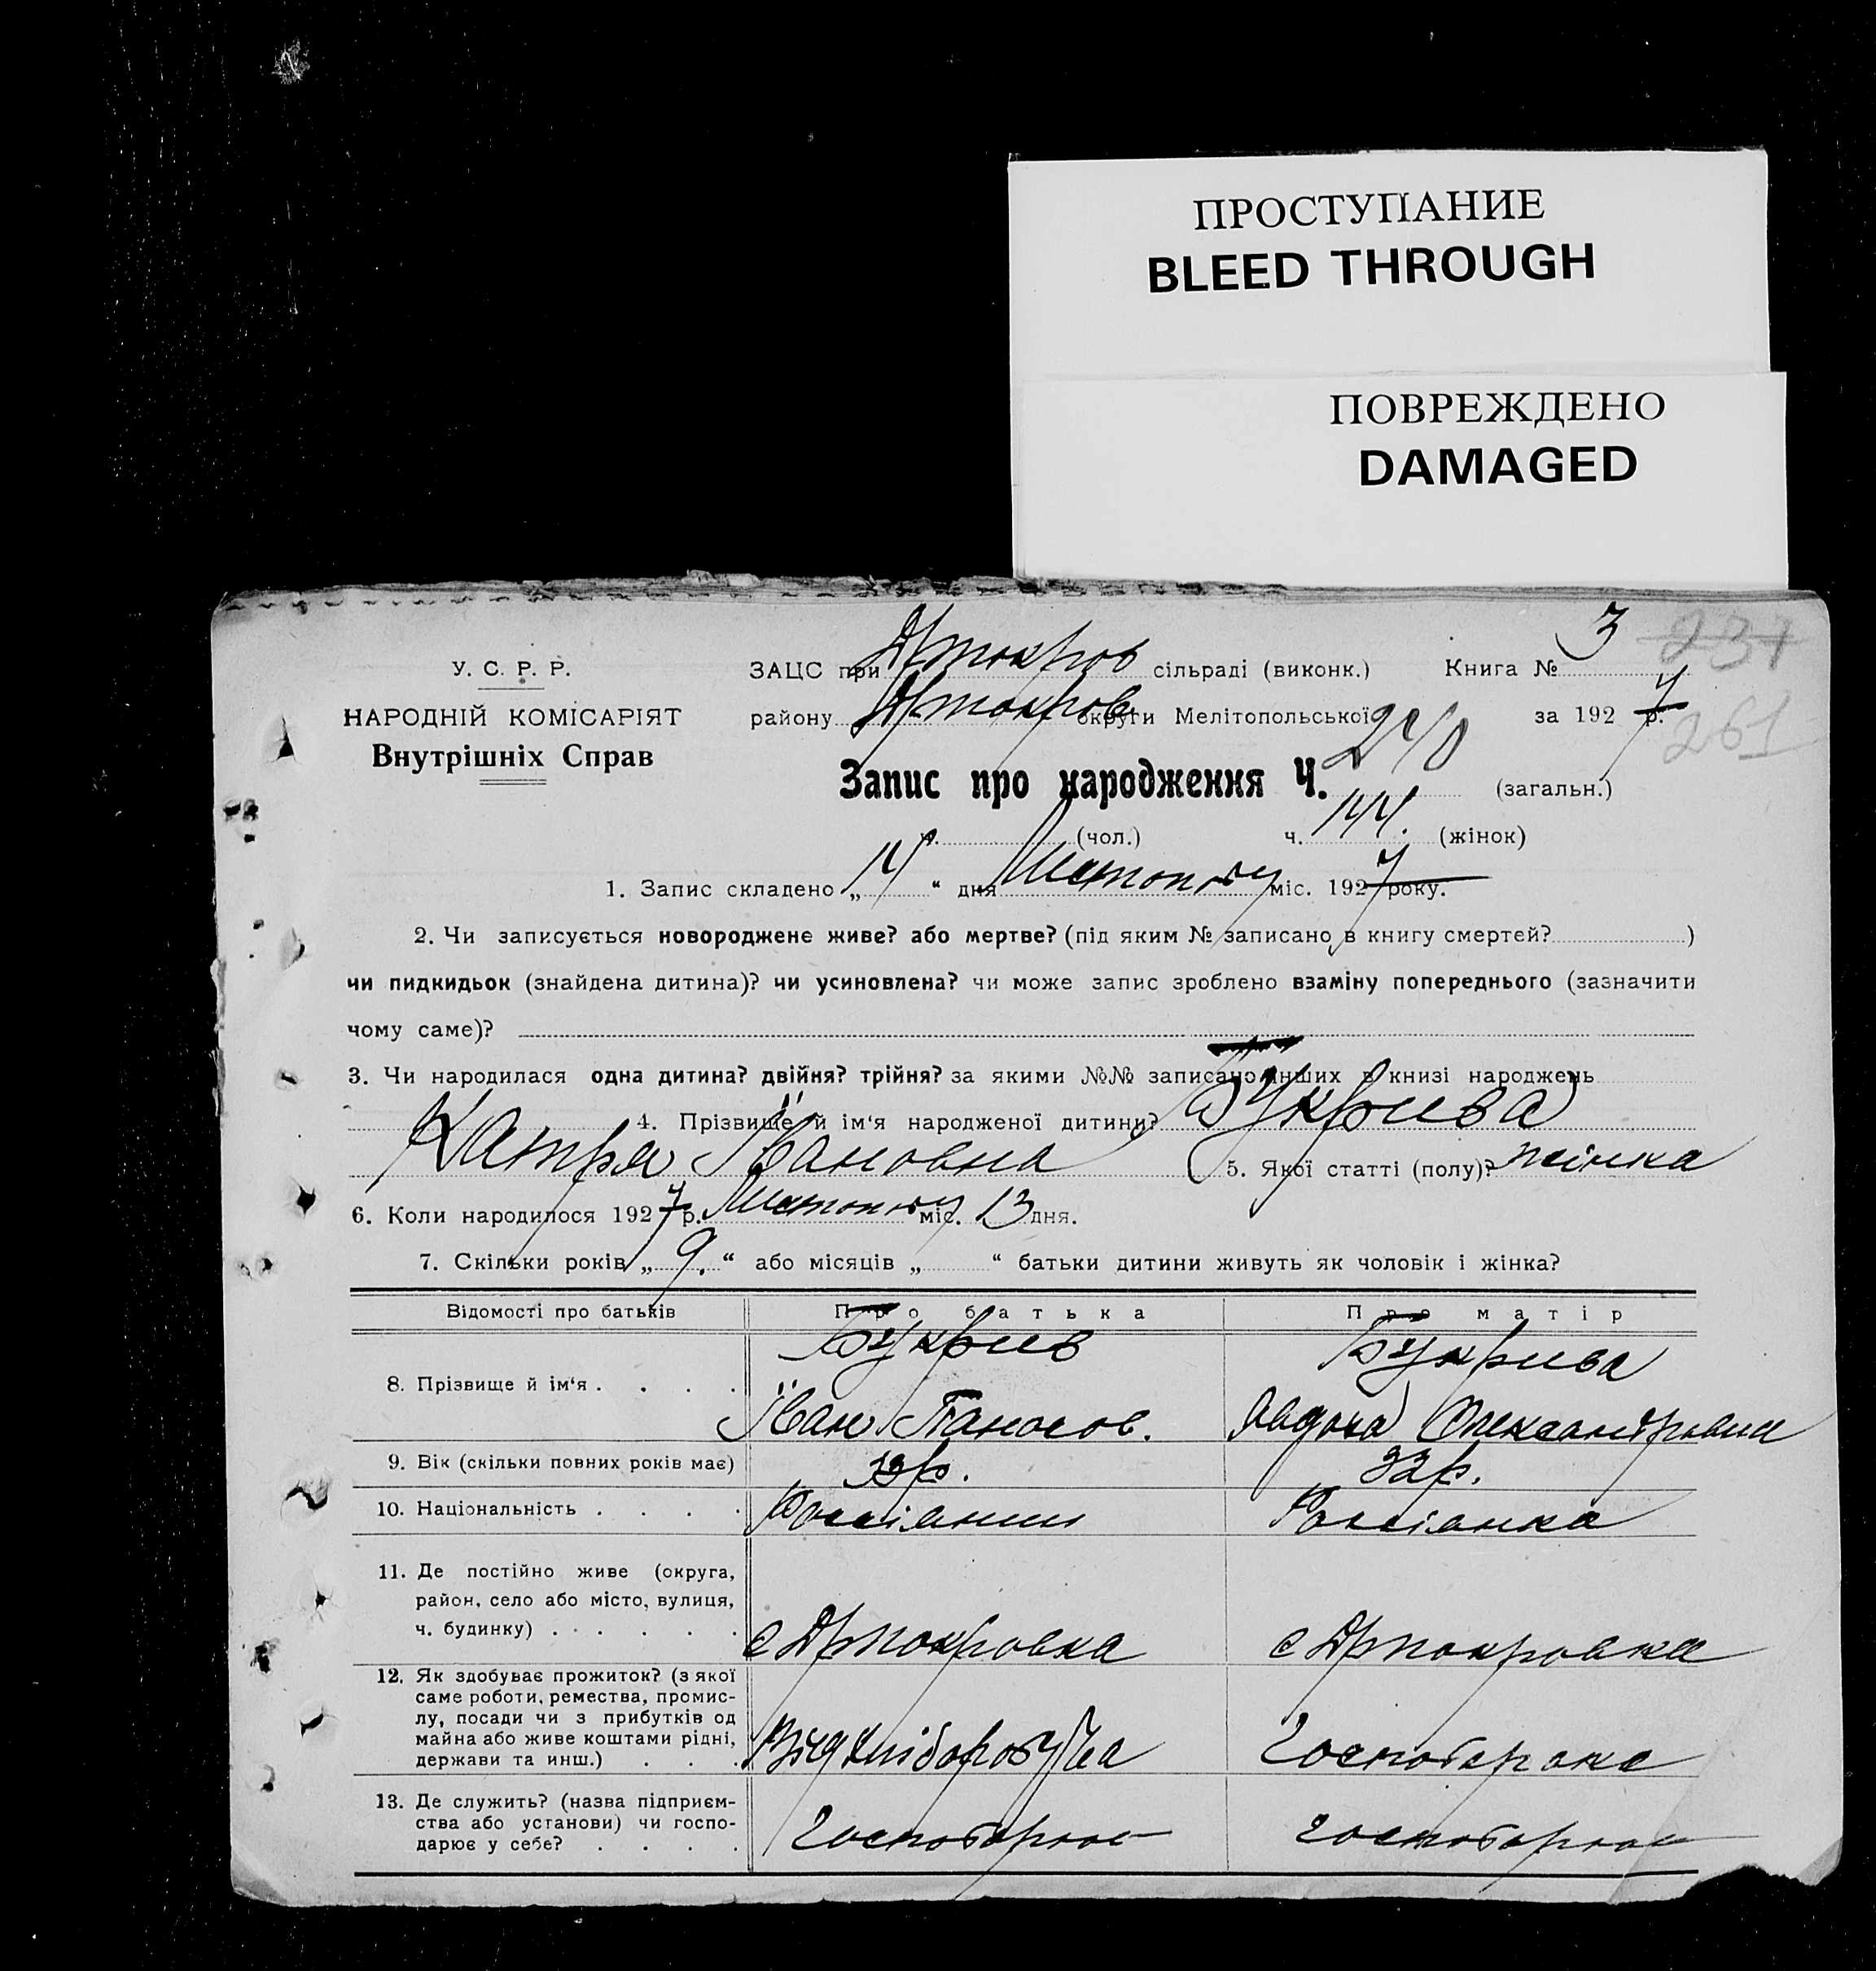 ПРОСТУПАНИЕ
BLEED THROUGH
ПОВРЕЖДЕНО
DAMAGED
У. С. Р. Р.
НАРОДНІЙ КОМІСАРІЯТ
Внутрішніх Справ
ЗАЦС при сільраді (виконк.) Книга № 3
237
району округи Мелітопольської за 1927 р.
261
Запис про народження Ч. 240 (загальн.)
ч. (чол.) ч. 144. (жінок)
1. Запис складено „14“ дня Листопаду міс. 1927 року.
2. Чи записується новороджене живе? або мертве? (під яким № записано в книгу смертей? )
чи пидкидьок (знайдена дитина)? чи усиновлена? чи може запис зроблено взаміну попереднього (зазначити
чому саме)?
3. Чи народилася одна дитина? двійня? трійня? за якими №№ записано інших в книзі народжень
4. Прізвище й ім‘я народженої дитини? Букрива
Катря Івановна 5. Якої статті (полу)? жінка
6. Коли народилося 1927 р. Листопаду міс. 13 дня.
7. Скільки років „9.“ або місяців „ “ батьки дитини живуть як чоловік і жінка?
Відомості про батьків Про батька Про матір
8. Прізвище й ім‘я . . . . Букрив Букрива
Іван Панасов. Явдоха Олександровна
9. Вік (скільки повних років має) 32р.
10. Національність . . . . Россіянин Россіянка
11. Де постійно живе (округа,
район, село або місто, вулиця,
ч. будинку) . . . . . .
12. Як здобуває прожиток? (з якої
саме роботи, ремества, промис-
лу, посади чи з прибутків од
майна або живе коштами рідні,
держави та инш.) . . .
13. Де служить? (назва підприєм-
ства або установи) чи госпо-
дарює у себе? . . . .